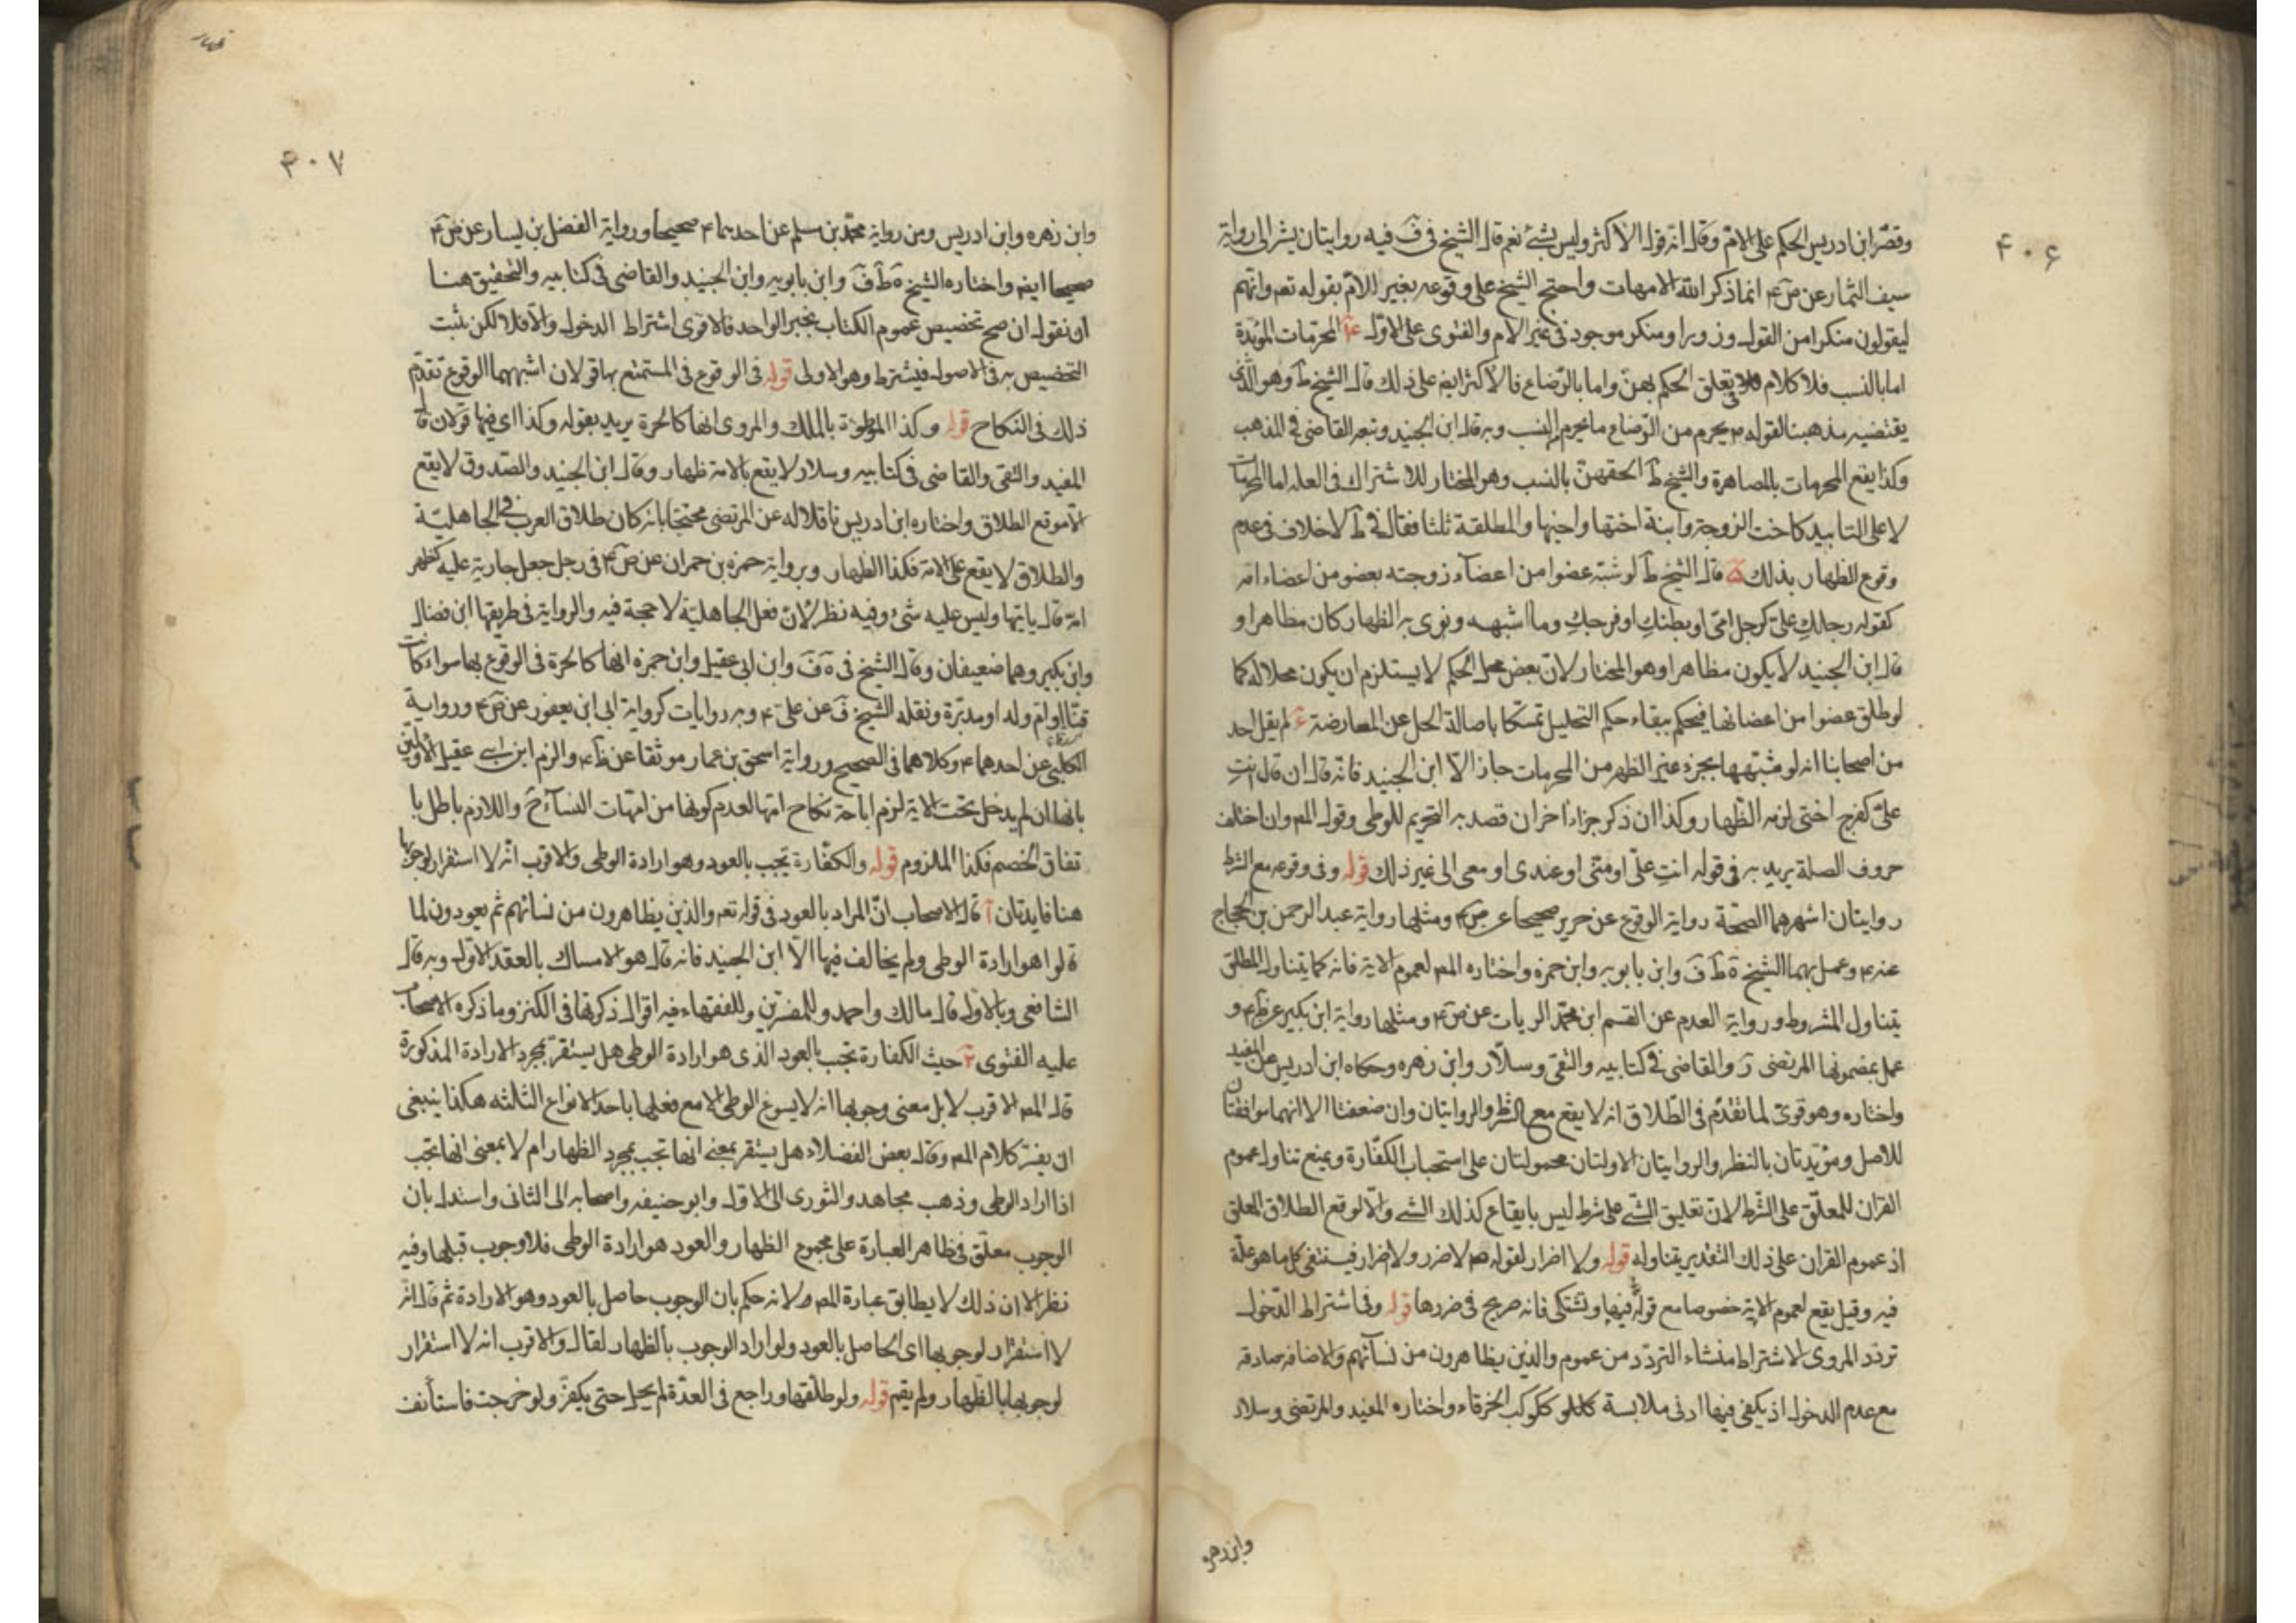 ۴۰۶
وقصّر ابن ادريس الحكم على الامّ وقال انه قول الاكثر وليس بشئ نعم قال الشيخ في فَ فيه روايتان يشير الى رواية
سيف التمار عن صَ ۴ انما ذكر الله الامهات واحتج الشيخ على وقوعه بغير الامّ بقوله تعه وانهم
ليقولون منكرا من القول وزورا ومنكر موجود في غير الام والفتوى على الاول المحرمات المؤبدة
اما بالنسب فلا كلام في تعلق الحكم بهنّ واما بالرضاع فالاكثر ايضه على ذلك قال الشيخ طَ وهو الذي
يقتضيه مذهبنا لقوله ص يحرم من الرّضاع ما يحرم من النسب وبه قال ابن الجنيد وتبعه القاضي في المذهب
وكذا يقع المحرمات بالمصاهرة والشيخ طَ الحقهنّ بالنسب وهو المختار للاشتراك في العله اما المحرمات
لا على التابيد كاخت الزوجة وابنة اختها واخيها والمطلقة ثلثا فقال في طَ لا خلاف في عدم
وقوع الظهار بذلك قال الشيخ طَ لو شبّه عضوا من اعضآء زوجته بعضو من اعضاء امه
كقوله رجلكِ علىّ كرجل امّى او بطنكِ او فرجكِ وما اشبهه ونوى به الظهار كان مظاهرا و
قال ابن الجنيد لا يكون مظاهرا وهو المختار لانّ بعض محل الحكم لا يستلزم ان يكون محلا له كما
لو طلق عضوا من اعضائها فيحكم ببقاء حكم التحليل تمسّكا باصالة الحل عن المعارضة لم يقل احد
من اصحابنا انه لو شبّهها بجزء غير الظهر من المحرمات جاز الّا ابن الجنيد فانّه قال ان قال انتِ
علىّ كفرج اختى لزمه الظّهار وكذا ان ذكر جزءا اخر ان قصد به التحريم للوطى وقول المصه وان اختلف
حروف الصلة يريد به في قوله انتِ علىّ او منّى او عندى او معى الى غير ذلك قوله وفى وقوعه مع الشرط
روايتان اشهرهما الصحّة رواية الوقوع عن حريز صحيحا عن صَ ۴ ومثلها رواية عبد الرحمن بن الحجاج
عنه ۴ وعمل بهما الشيخ ةَ طَ فَ وابن بابويه وابن حمزه واختاره المصه لعموم الاية فانه كما يتناول المطلق
يتناول المشروط ورواية العدم عن القسم ابن محمّد الزيات عن ضَ ۴ ومثلها رواية ابن بكير عن ظَ ۴ و
عمل بمضمونها المرتضى رَ والقاضى في كتابيه والتقى وسلّار وابن زهره وحكاه ابن ادريس عن المفيد
واختاره وهو قوىّ لما تقدّم في الطّلاق انه لا يقع مع الشّرط والروايتان وان ضعفتا الا انهما موافقتان
للاصل ومؤيدتان بالنظر والروايتان الاولتان محمولتان على استحباب الكفّارة ويمنع تناول عموم
القران للمعلّق على الشّرط لانّ تعليق الشئ على شرط ليس بايقاع كذلك الشئ والّا لوقع الطلاق المعلق
اذ عموم القران على ذلك التقدير يتناوله قوله ولا اضرار لقوله صه لا ضرر ولا ضرار فينتفى كل ما هو علّة
فيه وقيل يقع لعموم الاية خصوصا مع قوله فيها وتشتكى فانه صريح في ضررها قوله وفى اشتراط الدّخول
تردّد المروى الاشتراط منشاء التردّد من عموم والذين يظاهرون من نسآئهم والاضافه صادقه
مع عدم الدخول اذ يكفى فيها ادنى ملابسة كالملو ككوكب الخرقاء واختاره المفيد والمرتضى وسلار
وابن زهره
ظهار
۴۰۷
وابن زهره وابن ادريس ومن رواية محمّد بن مسلم عن احدهما ۴ صحيحا ورواية الفضل بن يسار عن صَ ۴
صحيحا ايضه واختاره الشيخ ةَ طَ فَ وابن بابويه وابن الجنيد والقاضى في كتابيه والتحقيق هنا
ان نقول ان صح تخصيص عموم الكتاب بخبر الواحد فالاقوى اشتراط الدخول والّا فلا لكن ثبت
التخصيص به في الاصول فيشترط وهو الاولى قوله في الوقوع في المستمتع بها قولان اشبههما الوقوع تقدّم
ذلك في النكاح قوله وكذا الموطوءة بالملك والمروى انها كالحرة يريد بقوله وكذا اى فيها قولان قال
المفيد والتقى والقاضى في كتابيه وسلار لا يقع بالامة ظهار وقال ابن الجنيد والصّدوق لا يقع
الّا موقع الطلاق واختاره ابن ادريس ناقلا له عن المرتضى محتجّا بانه كان طلاق العرب في الجاهليّة
والطلاق لا يقع على الامة فكذا الظهار وبرواية حمزه بن حمران عن صَ ۴ في رجل جعل جاريته عليه كظهر
امّه قال ياتيها وليس عليه شئ وفيه نظر لانّ فعل الجاهليّة لا حجة فيه والرواية في طريقها ابن فضال
وابن بكير وهما ضعيفان وقال الشيخ في ةَ فَ وابن ابى عقيل وابن حمزه انها كالحرة في الوقوع بها سواء كانت
قنّا او امّ ولد او مدبّرة ونقله الشيخ فَ عن علىّ ۴ وبه روايات كرواية ابى ابن يعفور عن صَ ۴ ورواية
عن احدهما ۴ وكلاهما في الصحيح ورواية اسحق بن عمار موثقا عن ظَ ۴ والزم ابن ابى عقيل الاوّلين
بانها ان لم يدخل تحت الاية لزم اباحة نكاح امّها لعدم كونها من امّهات النسآء حَ واللازم باطل با
تفاق الخصم فكذا الملزوم قوله والكفّارة تجب بالعود وهو ارادة الوطى والاقرب انّه لا استقرار لوجوبها
هنا فايدتان آ قال الاصحاب انّ المراد بالعود في قوله تعه والذين يظاهرون من نسائهم ثم يعودون لما
قالوا هو ارادة الوطى ولم يخالف فيها الّا ابن الجنيد فانه قال هو الامساك بالعقد الاول وبه قال
الشافعى وبالاول قال مالك واحمد وللمفسّرين وللفقهاء فيه اقوال ذكرتها في الكنز وما ذكره الاصحاب
عليه الفتوى حيث الكفارة تجب بالعود الذى هو ارادة الوطى هل يستقر بمجرد الارادة المذكورة
قال المصه الاقرب لا بل معنى وجوبها انه لا يسوغ الوطى الا مع فعلها باحد الانواع الثلثه هكذا ينبغى
ان يفسّر كلام المصه وقال بعض الفضلاء هل يستقر بمعنى انها تجب بمجرد الظهار ام لا بمعنى انها تجب
اذا اراد الوطى وذهب مجاهد والثورى الى الاول وابو حنيفه واصحابه الى الثانى واستدل بان
الوجوب معلّق في ظاهر العبارة على مجموع الظهار والعود هو ارادة الوطى فلا وجوب قبلها وفيه
نظر لان ذلك لا يطابق عبارة المصه ولانه حكم بان الوجوب حاصل بالعود وهو الارادة ثم قال انّه
لا استقرار لوجوبها اى الحاصل بالعود ولو اراد الوجوب بالظهار لقال والاقرب انه لا استقرار
لوجوبها بالظّهار ولم يقم قوله ولو طلّقها وراجع في العدّة لم يحل حتى يكفّر ولو خرجت فاستأنف